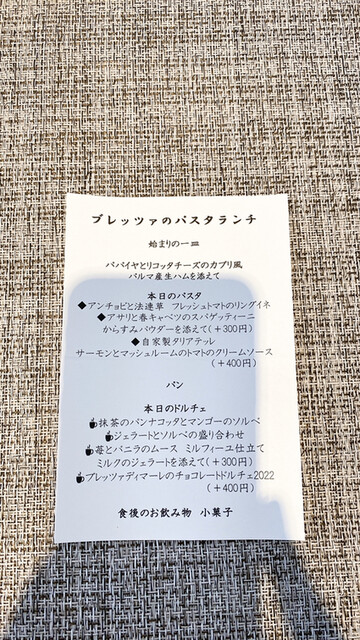 ブレッツァのパスタランチ
始まりの一皿
パパイヤとリコッタチーズのカプリ風
パルマ産生ハムを添えて
本日のパスタ
◆アンチョビと法連草 フレッシュトマトのリングイネ
◆アサリと春キャベツのスパゲッティーニ
からすみパウダーを添えて(+300円)
◆自家製タリアテッレ
サーモンとマッシュルームのトマトのクリームソース
(+400円)
パン
本日のドルチェ
抹茶のパンナコッタとマンゴーのソルベ
ジェラートとソルベの盛り合わせ
苺とバニラのムース ミルフィーユ仕立て
ミルクのジェラートを添えて(+300円)
ブレッツァディマーレのチョコレートドルチェ2022
(+400円)
食後のお飲み物 小菓子